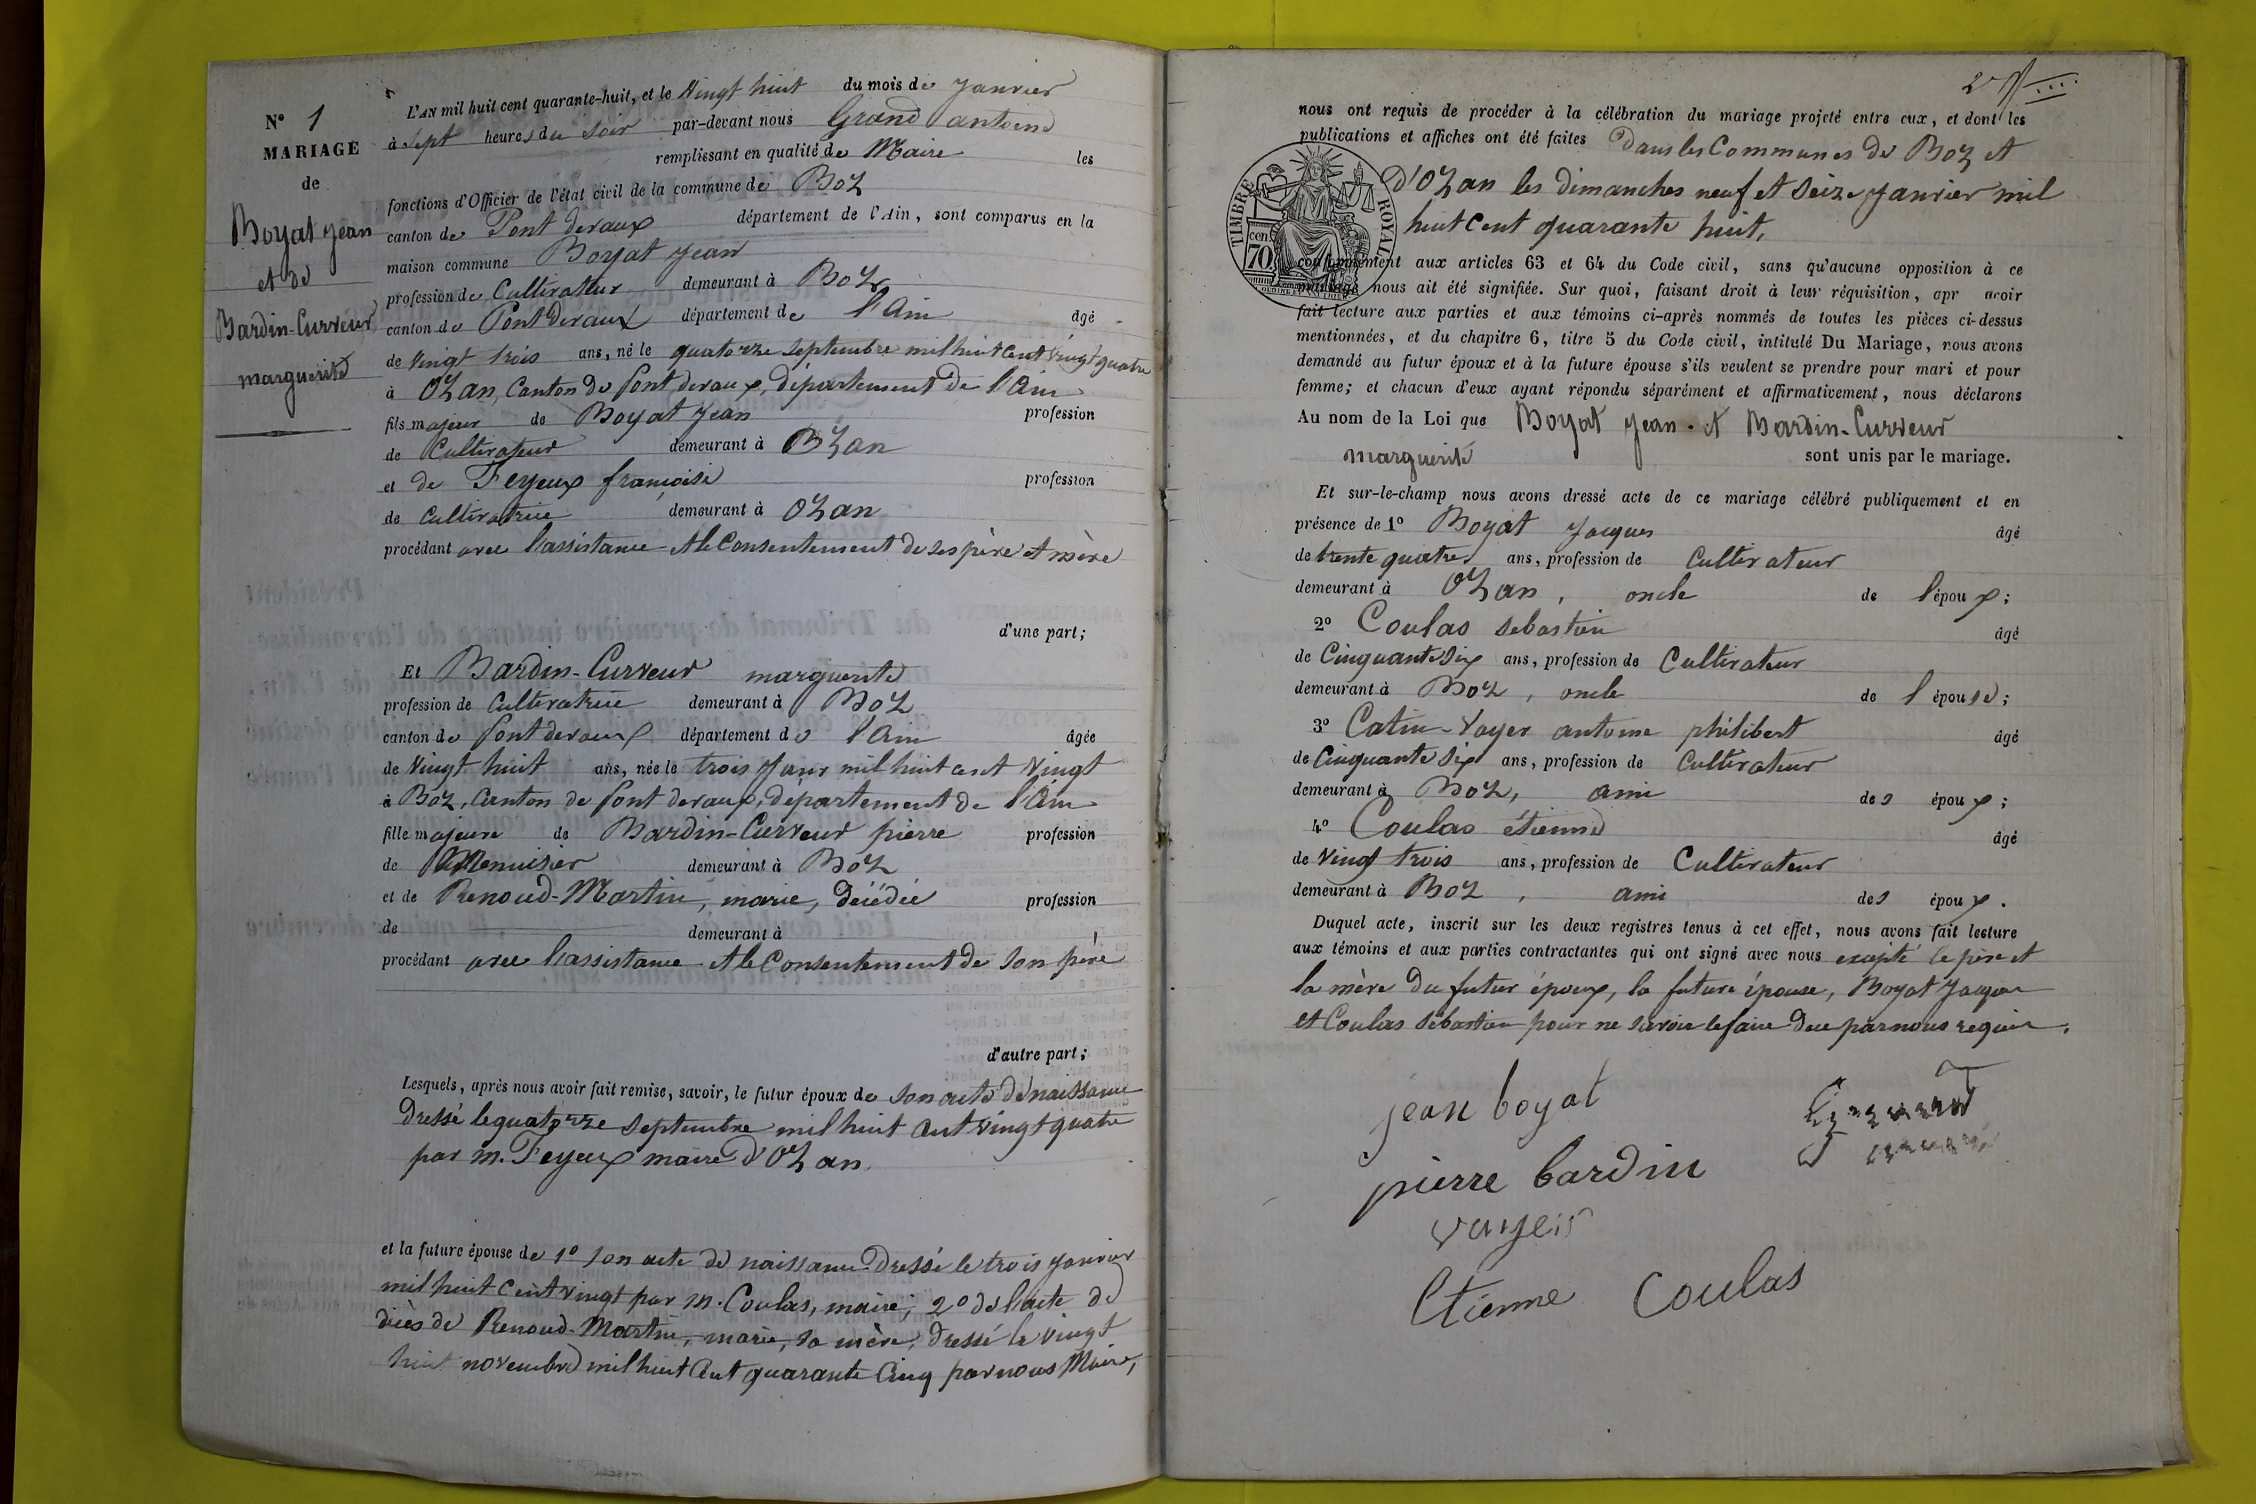 N° 1
MARIAGE
de
Boyat jean
et de
Bardin-Curveur
marguerite
L'AN mil huit cent quarante-huit, et le vingt huit du mois de janvier
à sept heures du soir par-devant nous Grand antoine
remplissant en qualité de Maire les
fonctions d'Officier de l'état civil de la commune de Boz
canton de Pont devaux département de l'Ain, sont comparus en la
maison commune Boyat jean
profession de Cultivateur demeurant à Boz
canton de Pont devaux département de l'Ain âgé
de vingt trois ans, né le quatorze septembre mil huit cent vingt quatre
à Ozan, Canton de Pont devaux, département de l'Ain
fils majeur de Boyat jean profession
de Cultivateur demeurant à Ozan
et de Feyeux françoise profession
de Cultivatrice demeurant à Ozan
procédant avec l'assistance et le Consentement de ses père et mère
d'une part;
Et Bardin-Curveur marguerite
profession de Cultivatrice demeurant à Boz
canton de Pont devaux département de l'Ain âgée
de vingt huit ans, née le trois janvier mil huit cent vingt
à Boz, Canton de Pont devaux, département de l'Ain
fille majeure de Bardin-Curveur pierre profession
de Menuisier demeurant à Boz
et de Renoud-Martin, marie, décédée profession
de demeurant à
procédant avec l'assistance et le Consentement de son père
d'autre part;
Lesquels, après nous avoir fait remise, savoir, le futur époux de son acte de naissance
dressé le quatorze septembre mil huit cent vingt quatre
par m. Feyeux maire d'Ozan.
et la future épouse de 1° son acte de naissance dressé le trois janvier
mil huit cent vingt par m. Coulas, maire; 2° de l'acte de
décès de Renoud-Martin, marie, sa mère, dressé le vingt
huit novembre mil huit cent quarante cinq par nous Maire,
nous ont requis de procéder à la célébration du mariage projeté entre eux, et dont les
publications et affiches ont été faites dans les Communes de Boz et
d'Ozan les dimanches neuf et seize janvier mil
huit cent quarante huit,
TIMBRE ROYAL
70
conformément aux articles 63 et 64 du Code civil, sans qu'aucune opposition à ce
mariage nous ait été signifiée. Sur quoi, faisant droit à leur réquisition, apr avoir
fait lecture aux parties et aux témoins ci-après nommés de toutes les pièces ci-dessus
mentionnées, et du chapitre 6, titre 5 du Code civil, intitulé Du Mariage, nous avons
demandé au futur époux et à la future épouse s'ils veulent se prendre pour mari et pour
femme; et chacun d'eux ayant répondu séparément et affirmativement, nous déclarons
Au nom de la Loi que Boyat jean et Bardin-Curveur
marguerite sont unis par le mariage.
Et sur-le-champ nous avons dressé acte de ce mariage célébré publiquement et en
présence de 1° Boyat jacques âgé
de trente quatre ans, profession de Cultivateur
demeurant à Ozan, oncle de l'époux;
2° Coulas sebastien âgé
de Cinquante six ans, profession de Cultivateur
demeurant à Boz, oncle de l'épouse;
3° Catin-Vayer antoine philibert âgé
de Cinquante six ans, profession de Cultivateur
demeurant à Boz, ami des époux;
4° Coulas étienne âgé
de vingt trois ans, profession de Cultivateur
demeurant à Boz, ami des époux.
Duquel acte, inscrit sur les deux registres tenus à cet effet, nous avons fait lecture
aux témoins et aux parties contractantes qui ont signé avec nous excepté le père et
la mère du futur époux, la future épouse, Boyat jacques
et Coulas sébastien pour ne savoir le faire de ce par nous requis.
jean boyat
pierre bardin
vayer
Etienne Coulas